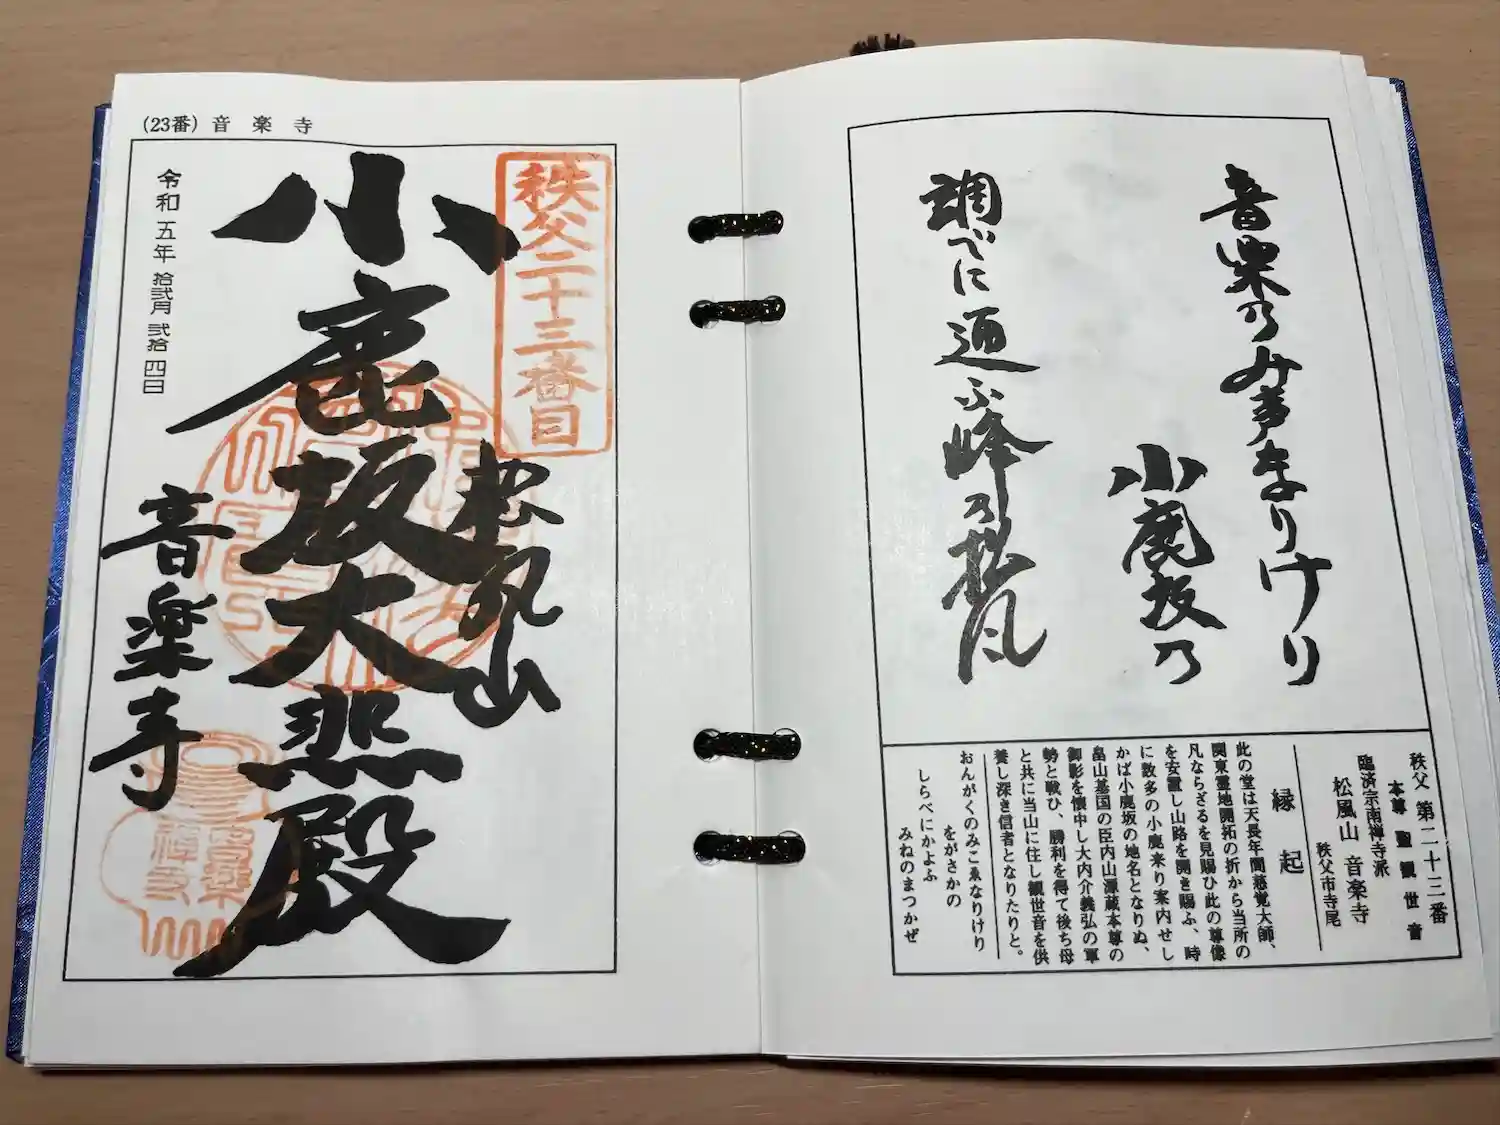 音楽乃みま多まりけり
小鹿坂乃
調べに通ふ峰乃松風
秩父 第二十三番
本尊 聖観世音
臨済宗南禅寺派
松風山 音楽寺
秩父市寺尾
縁起
此の堂は天長年間慈覚大師、
関東霊地開拓の折から当所の
凡ならざるを見賜ひ此の尊像
を安置し山路を開き賜ふ、時
に数多の小鹿来り案内せし
かば小鹿坂の地名となりぬ、
畠山基国の臣内山源蔵本尊の
御影を懐中し大内介義弘の軍
勢と戦ひ、勝利を得て後ち母
と共に当山に住し観世音を供
養し深き信者となりたりと。
おんがくのみこゑなりけり
をがさかの
しらべにかよふ
みねのまつかぜ
(23番) 音楽寺
秩父二十三番目
松風山
小鹿坂大悲殿
音楽寺
令和五年拾弐月弐拾四日